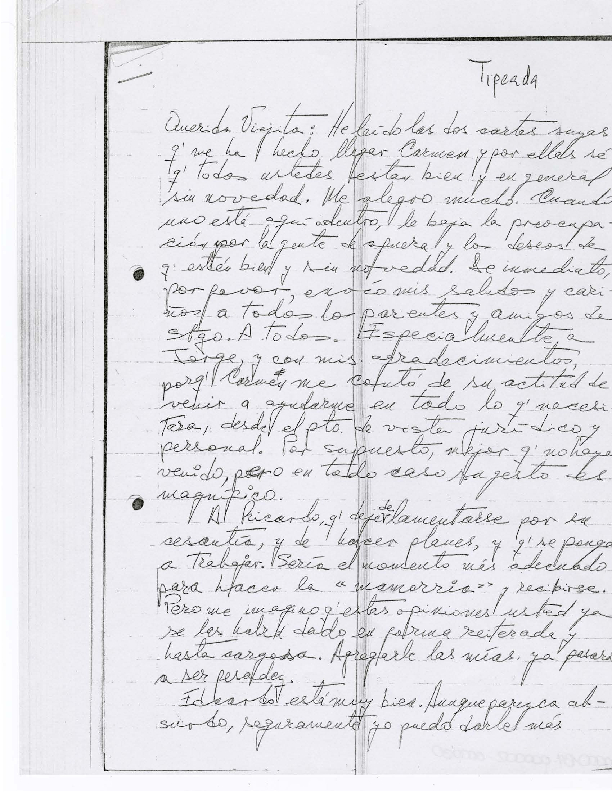 Tipeada
Querida Viejita: He leído las dos cartas suyas
q' me ha hecho llegar Carmen y por ellas sé
q' todos ustedes estan bien y en general
sin novedad. Me alegro mucho. Cuando
uno está aquí adentro, le baja la preocupa-
ción por la gente de afuera y los deseos de
q' estén bien y sin novedad. De inmediato,
por favor, envío mis saludos y cari-
ños a todos lo parientes y amigos de
Stgo. A todos. Especialmente a
Jorge, y con mis agradecimientos,
porq' Carmen me contó de su actitud de
venir a ayudarme en todo lo q' necesi
tara, desde el pto de vista jurídico y
personal. Por supuesto, mejor q' no haya
venido, pero en todo caso su gesto es
magnífico.
A Ricardo, q' deje de lamentarse por su
cesantía, y de hacer planes, y q' se ponga
a trabajar. Sería el momento más adecuado
para hacer la "memorria" y recibirse.
Pero me imagino q' estas opiniones usted ya
se las habrá dado en forma reiterada y
hasta cargosa. Agregarle las mías ya pasaría
a ser pesadez.
está muy bien. Aunque parezca ab-
surdo, seguramente yo puedo darle más